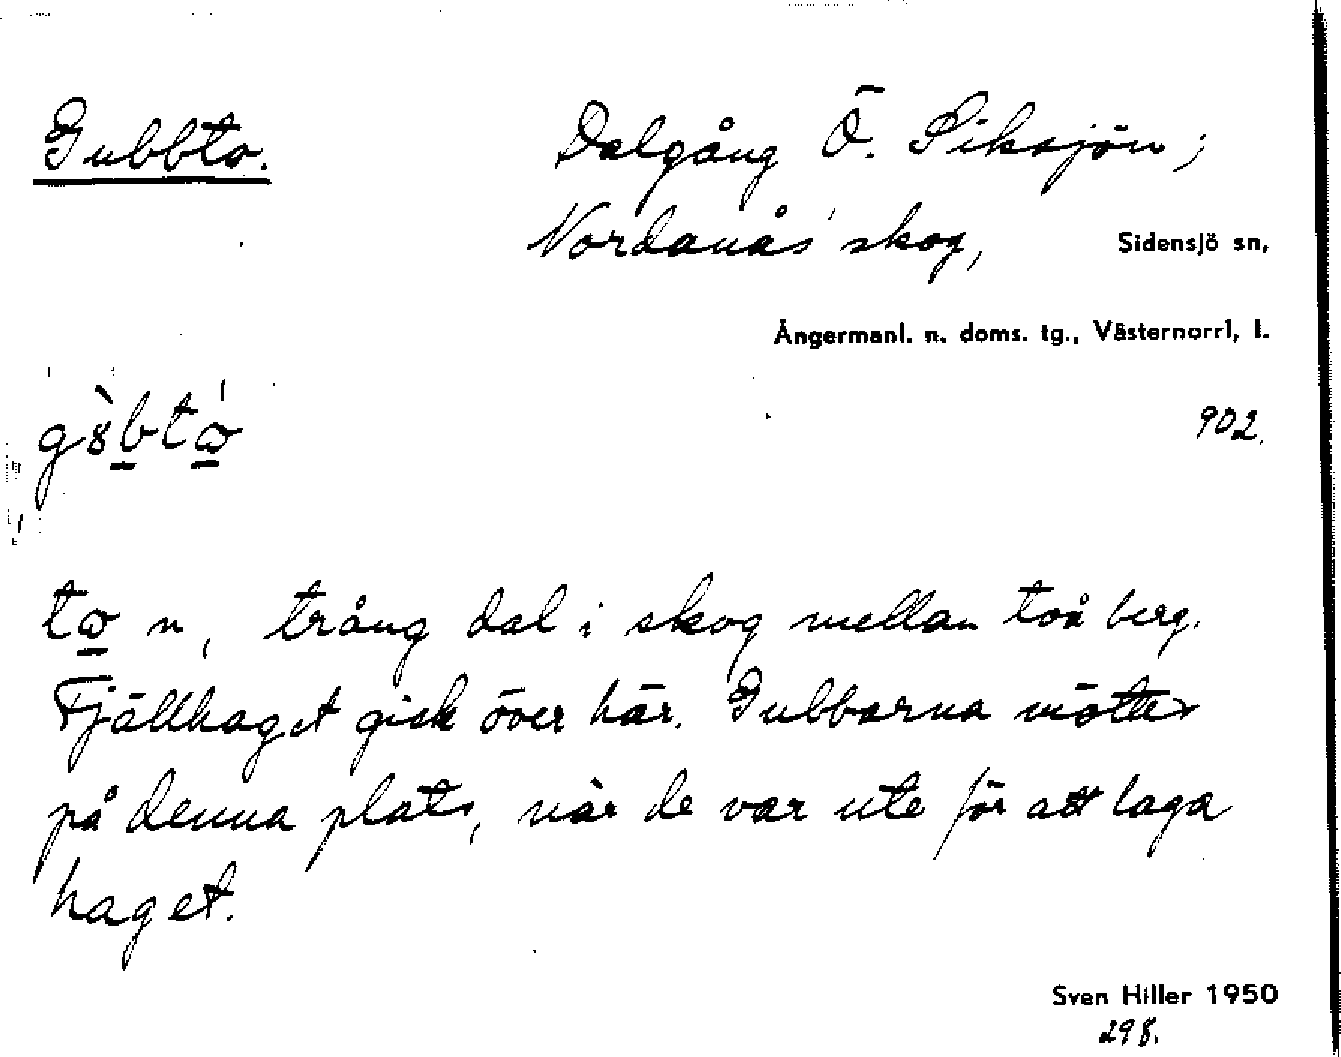 Gubbto.
Dalgång Ö. Siksjön;
Nordanås' skog, Sidensjö sn,
Ångermanl. n. doms. tg., Västernorrl, l.
902.
to n, trång dal i skog mellan två berg.
Fjällhaget gick över här. Gubbarna mötte
på denna plats, när de var ute för att laga
haget.
Sven Hiller 1950
298.